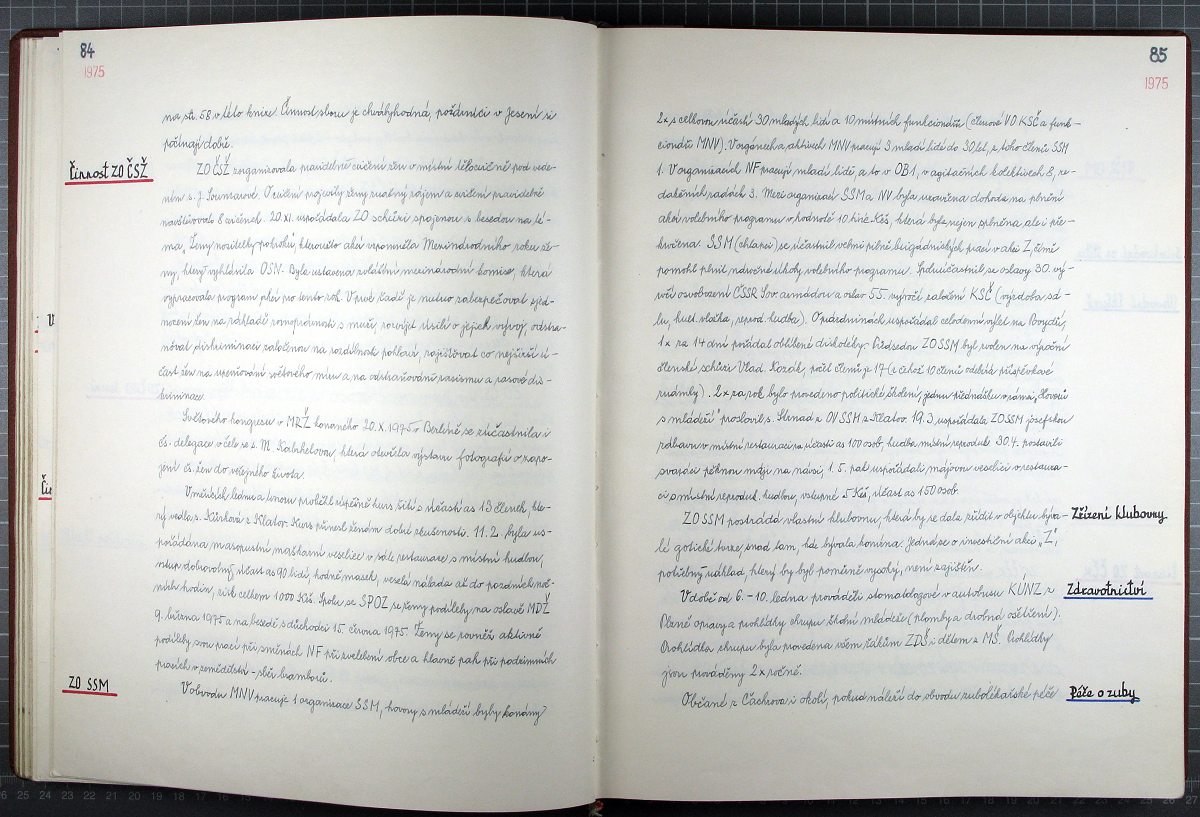 84
1975
na str. 58 v této knize. Činnost sboru je chvályhodná, požárníci v Jesení si
počínají dobře.
Činnost ZO ČSŽ
ZO ČSŽ zorganizovala pravidelné cvičení žen v místní tělocvičně pod vede-
ním s. J. Soumarové. O cvičení projevily ženy značný zájem a cvičení pravidelně
navštěvovalo 8 cvičenek. 20. XI. uspořádala ZO schůzi spojenou s besedou na té-
ma „Ženy nositelky pokroku, kterou této akcí vzpomněla Mezinárodního roku že-
ny, který vyhlásila OSN. Byla ustavena zvláštní mezinárodní komise, která
vypracovala program akcí pro tento rok. V prvé řadě je nutno zabezpečovat sjed-
nocení žen na základě rovnoprávnosti s muži, rozvíjet úsilí o jejich vývoj, odstra-
ňovat diskriminaci založenou na rozdílnosti pohlaví, zajišťovat co nejširší ú-
čast žen na upevňování světového míru a na odstraňování rasismu a rasové dis-
kriminace.
Světového kongresu v MRŽ konaného 20. X. 1975 v Berlíně se zúčastnila i
čs. delegace v čele se s. M. Kabrhelovou, která otevřela výstavu fotografií o zapo-
jení čs. žen do veřejného života.
V měsících lednu a únoru proběhl úspěšně kurs šití s účastí as 13 členek, kte-
rý vedla s. Kůrková z Klatov. Kurs přinesl ženám dobré zkušenosti. 11. 2. byla us-
pořádána masopustní maškarní veselice v sále restaurace s místní hudbou,
vstup dobrovolný, účast as 90 lidí, hodně masek, veselá nálada až do pozdních noč-
ních hodin, zisk celkem 1000 Kčs. Spolu se SPOZ se ženy podílely na oslavě MDŽ
9. března 1975 a na besedě s důchodci 15. června 1975. Ženy se rovněž aktivně
podílely svou prací při směnách NF při zvelebení obce a hlavně pak při podzimních
pracích v zemědělství - sběr brambor.
ZO SSM
V obvodu MNV pracuje 1 organizace SSM, hovory s mládeží byly konány
85
1975
2x s celkovou účastí 30 mladých lidí a 10 místních funkcionářů (členové VO KSČ a funk-
cionáři MNV). V orgánech a aktivech MNV pracují 3 mladí lidé do 30 let, z toho členů SSM
1. V organizacích NF pracují mladí lidé, a to v OB 1, v agitačních kolektivech 8, re-
dakčních radách 3. Mezi organisací SSM a NV byla uzavřena dohoda na plnění
akcí volebního programu v hodnotě 10 tisíc Kčs, která byla nejen splněna ale i pře-
kročena. SSM (chlapci) se účastnil velmi pilně brigádnických prací v akci Z, čímž
pomohl plnit náročné úkoly volebního programu. Spoluúčastnil se oslavy 30. vý-
ročí osvobození ČSSR Sov. armádou a oslav 55. výročí založení KSČ (výzdoba sá-
lu, kult. vložka, reprod. hudba). O prázdninách uspořádal celodenní výlet na Povydří,
1x za 14 dní pořádal oblíbené diskotéky. Předsedou ZO SSM byl zvolen na výroční
členské schůzi Vlad. Kozák, počet členů je 17 (z čehož 10 členů odebírá příspěvkové
známky). 2x za rok bylo provedeno politické školení, jednu přednášku v rámci „Hovorů
s mládeží" proslovil s. Strnad z OV SSM z Klatov. 19. 3. uspořádala ZO SSM josefskou
zábavu v místní restauraci za účasti as 100 osob, hudba místní reproduk. 30. 4. postavili
svazáci pěknou máju na návsi, 1. 5. pak uspořádali májovou veselici v restaura-
ci s místní reproduk. hudbou, vstupné 5 Kčs, účast as 150 osob.
Zřízení klubovny
ZO SSM postrádá vlastní klubovnu, která by se dala zřídit v objektu býva-
lé gotické tvrze, snad tam, kde bývala konírna. Jedná se o investiční akci „Z",
potřebný náklad, který by byl poměrně vysoký, není zajištěn.
Zdravotnictví
V době od 6. - 10. ledna prováděli stomatologové v autobusu KÚNZ z
Plzně opravy a prohlídky chrupu školní mládeže (plomby a drobná ošetření).
Prohlídka chrupu byla provedena všem žákům ZDŠ i dětem z MŠ. Prohlídky
jsou prováděny 2x ročně.
Péče o zuby
Občané z Čachrova i okolí, pokud náleží do obvodu zubolékařské péče